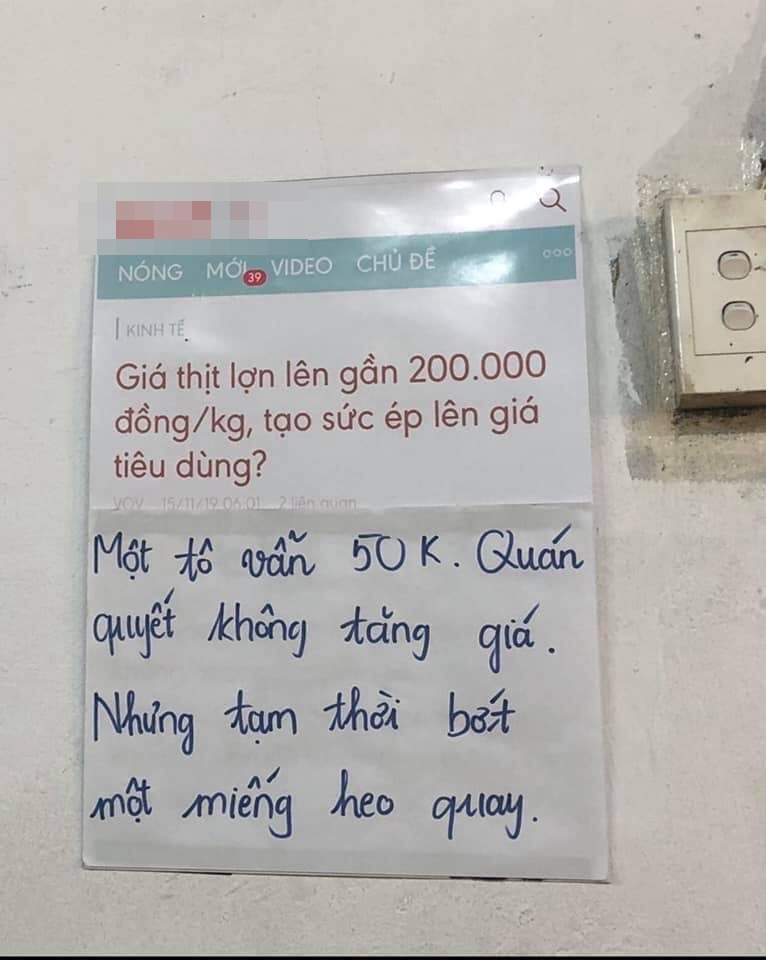 NÓNG MỚI 39 VIDEO CHỦ ĐỀ
KINH TẾ
Giá thịt lợn lên gần 200.000
đồng/kg, tạo sức ép lên giá
tiêu dùng?
VOV 15/11/19 06:01 2 liên quan
Một tô vẫn 50K. Quán
quyết không tăng giá.
Nhưng tạm thời bớt
một miếng heo quay.